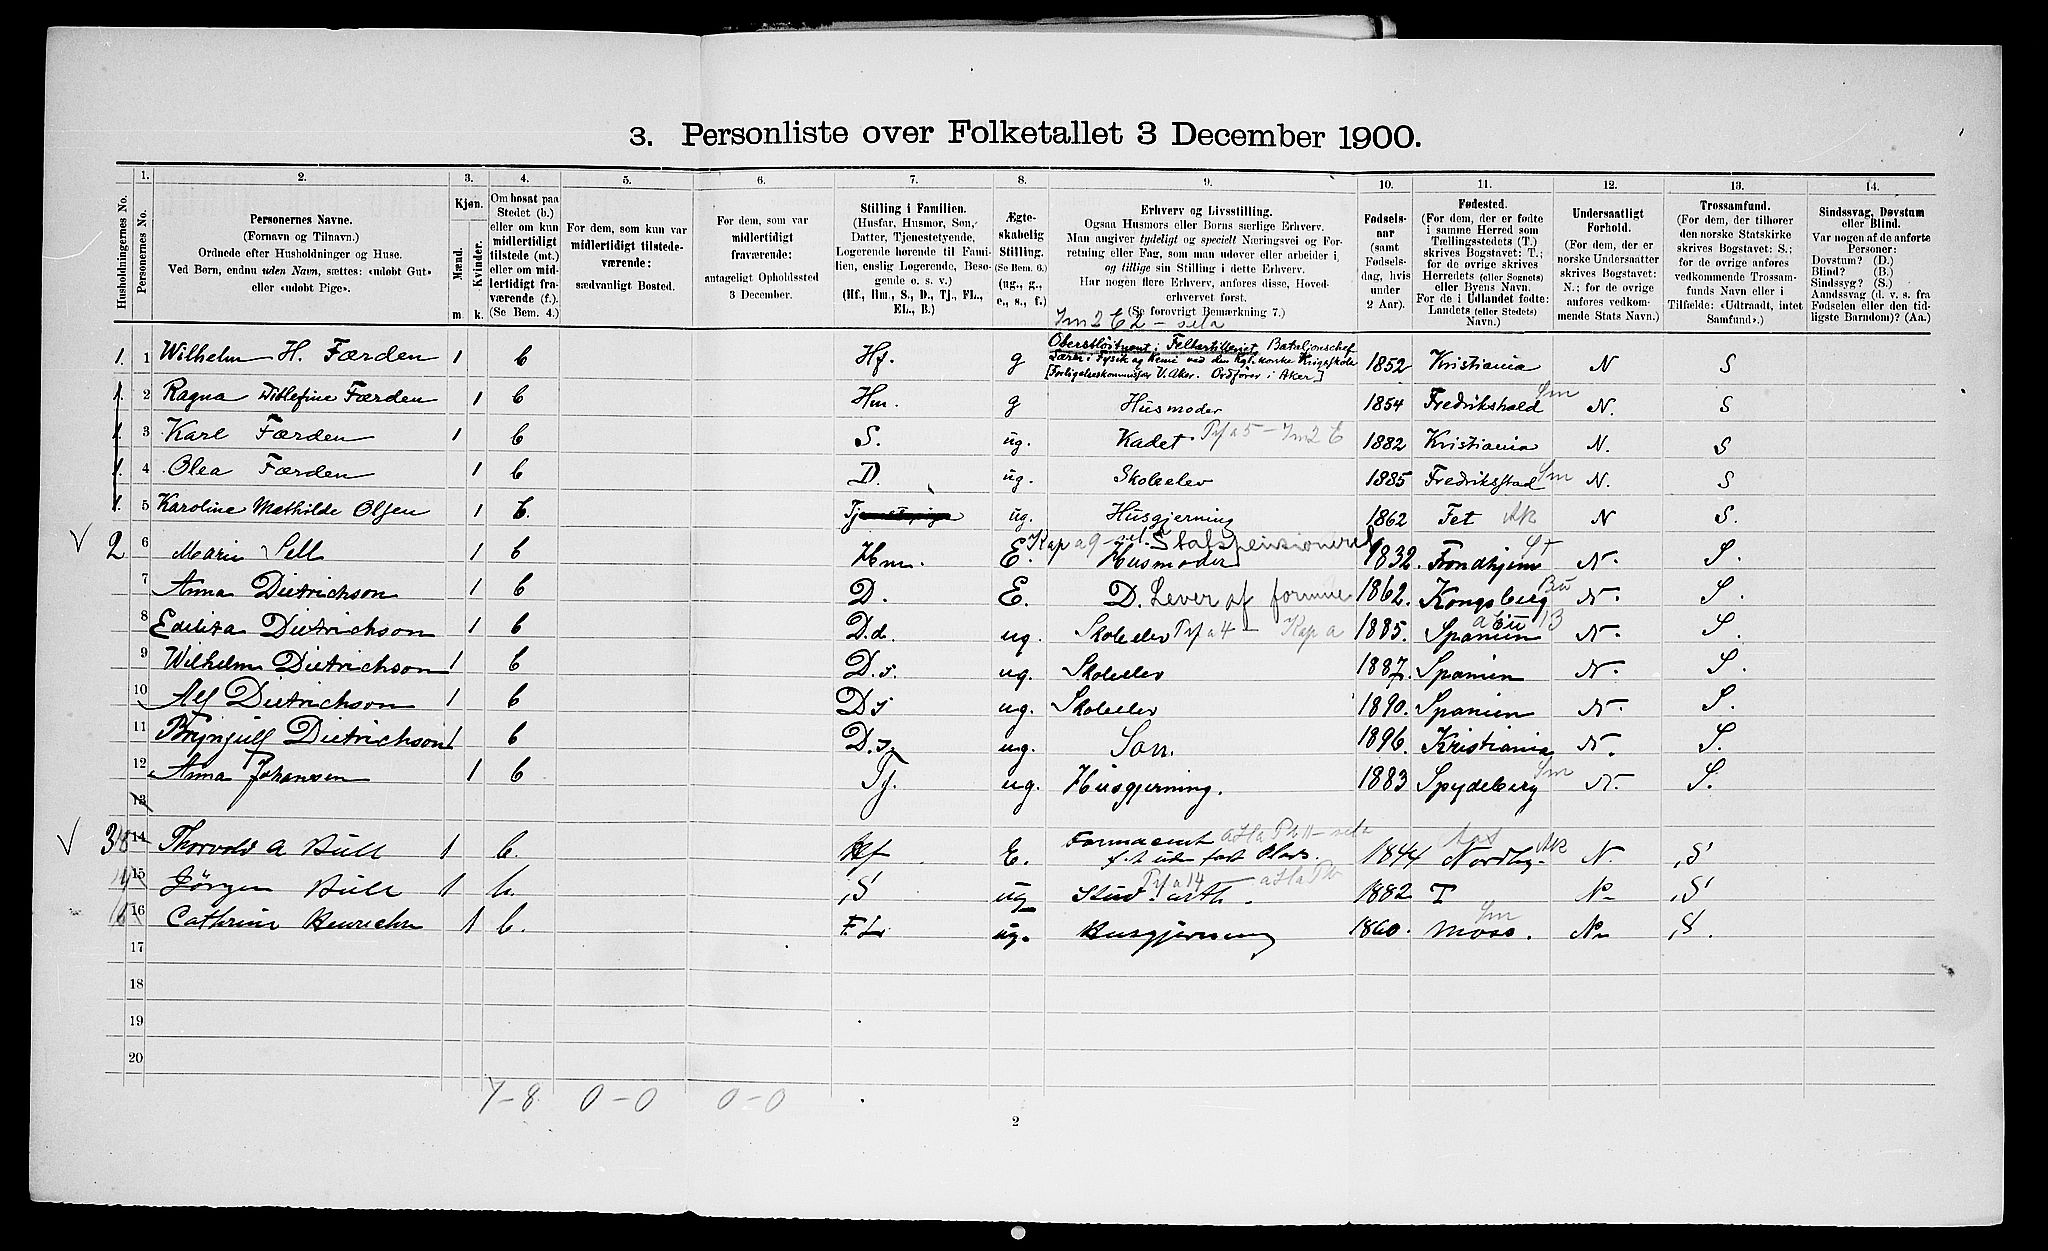 3. Personliste over Folketallet 3 December 1900.
Husholdningernes No.
1. Personernes No.
2. Personernes Navne. (Fornavn og Tilnavn.) Ordnede efter Husholdninger og Huse. Ved Børn, endnu uden Navn, sættes: «udøbt Gut» eller «udøbt Pige».
3. Kjøn. Mænd. m. Kvinder. k.
4. Om bosat paa Stedet (b.) eller om kun midlertidigt tilstede (mt.) eller om midlertidigt fraværende (f.). (Se Bem. 4.)
5. For dem, som kun var midlertidigt tilstedeværende: sædvanligt Bosted.
6. For dem, som var midlertidigt fraværende: antageligt Opholdssted 3 December.
7. Stilling i Familien. (Husfar, Husmor, Søn, Datter, Tjenestetyende, Logerende hørende til Familien, enslig Logerende, Besøgende o. s. v.) (Hf., Hm., S., D., Tj., FL., EL., B.)
8. Ægteskabelig Stilling. (Se Bem. 6.) (ug., g., e., s., f.)
9. Erhverv og Livsstilling. Ogsaa Husmors eller Børns særlige Erhverv. Man angiver tydeligt og specielt Næringsvei og Forretning eller Fag, som man udøver eller arbeider i, og tillige sin Stilling i dette Erhverv. Har nogen flere Erhverv, anføres disse, Hovederhvervet først. (Se forøvrigt Bemærkning 7.)
10. Fødselsaar (samt Fødselsdag, hvis under 2 Aar).
11. Fødested. (For dem, der er fødte i samme Herred som Tællingsstedets (T.) skrives Bogstavet: T.; for de øvrige skrives Herredets (eller Sognets) eller Byens Navn. For de i Udlandet fødte: Landets (eller Stedets) Navn.)
12. Undersaatligt Forhold. (For dem, der er norske Undersaatter skrives Bogstavet: N.; for de øvrige anføres vedkommende Stats Navn.)
13. Trossamfund. (For dem, der tilhører den norske Statskirke skrives Bogstavet: S.; for de øvrige anføres vedkommende Trossamfunds Navn eller i Tilfælde: «Udtraadt, intet Samfund».)
14. Sindssvag, Døvstum eller Blind. Var nogen af de anførte Personer: Døvstum? (D.) Blind? (B.) Sindssyg? (S.) Aandssvag (d. v. s. fra Fødselen eller den tidligste Barndom)? (Aa.)
Im2 E2 - sela
1. 1 Wilhelm H. Færden 1 b Hf. g Oberstløitnant i Feltartilleriet Bataljonschef Lærer i Fysik og Kemi ved den Kgl. norske Krigsskole [Forligelseskommissær V. Aker. Ordfører i Aker] 1852 Kristiania N S
1. 2 Ragna Ditlefine Færden 1 b Hm. g Husmoder 1854 Fredrikshald Sm N. S
1. 3 Karl Færden 1 b S. ug. Kadet Pf a5 - Im2 E 1882 Kristiania N. S
1. 4 Olea Færden 1 b D. ug. Skoleelev 1885 Fredriksstad Sm N. S
1. 5 Karoline Mathilde Olsen 1 b. Tj ug. Husgjerning 1862 Fet Ak N S.
2 6 Marie Sell 1 b Hm. E. Kap a9 - sel. Statspensioneret Husmoder 1832. Trondhjem St N. S.
7 Anna Dietrichson 1 b D. E. D. Lever af formue 1862. Kongsberg Bu N. S.
8 Edelita Dietrichson 1 b D.d. ug. Skoleelev Pf a4 - Kap a 1885. Spanien N. S.
9 Wilhelm Dietrichson 1 b D.s. ug. Skoleelev 1887. Spanien N. S.
10 Alf Dietrichson 1 b D s ug. Skoleelev 1890. Spanien N. S.
11 Brynjulf Dietrichson 1 b D.s. ug. Søn. 1896. Kristiania N. S.
12 Anna Johansen 1 b Tj. ug. Husgjerning. 1883 Spydeberg Sm N. S.
13
3 14 Thorvold A Bull 1 b. Hf E. Farmaceut f. t. uden fast Plads. 1844 Nordby Ak N. S
15 Jørgen Bull 1 b. S ug Stud. Pf a14 1882 T N S
16 Cathrine Henrichsen 1 b. F.L. ug. Husgjerning 1860. Moss. Sm N S.
17
18
19
20
7-8 0-0 0-0
2